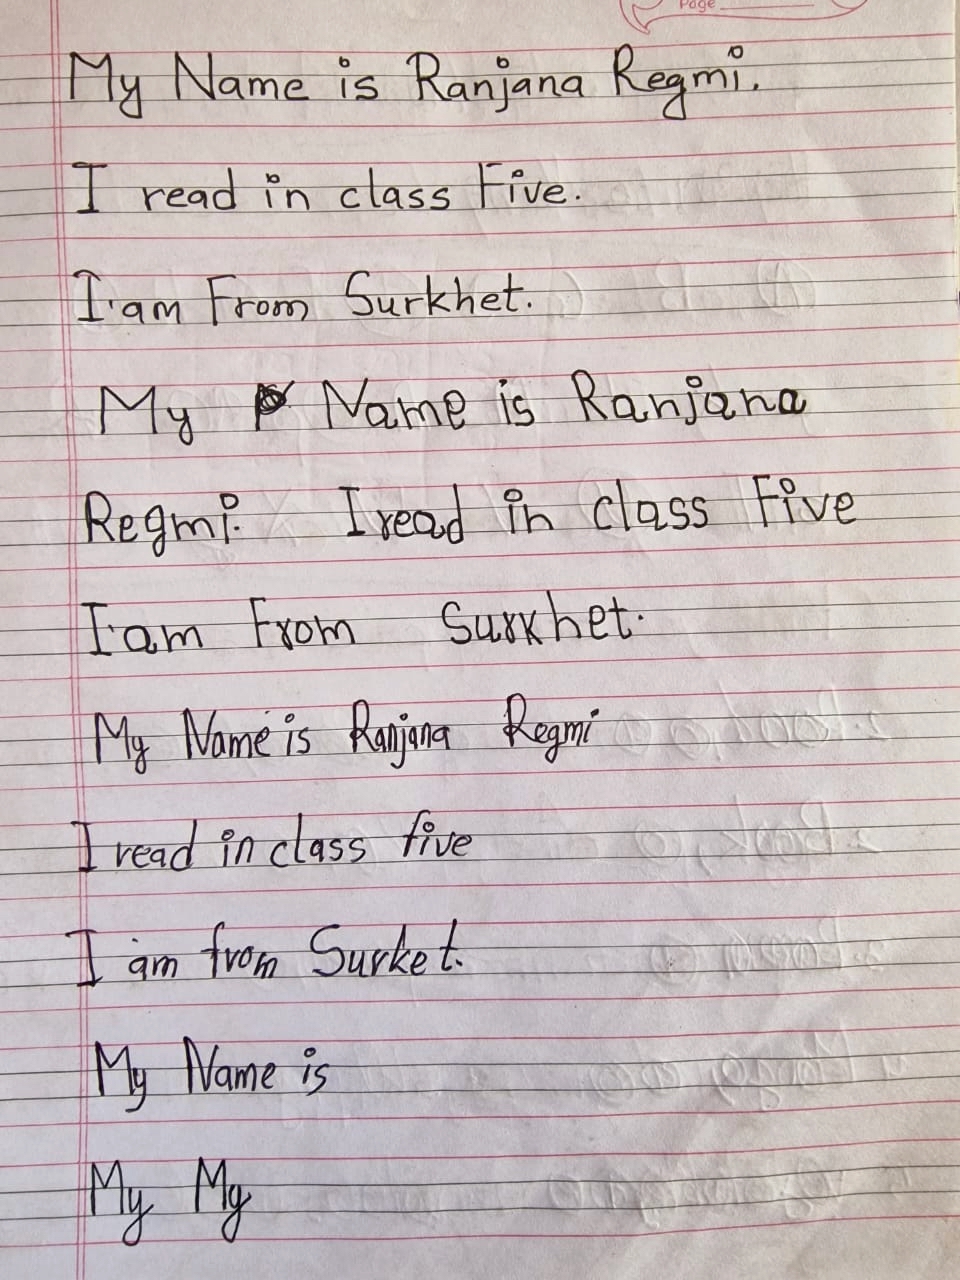 Page
My Name is Ranjana Regmi.
I read in class Five.
I am From Surkhet.
My Name is Ranjana
Regmi. I read in class Five
I am From Surkhet.
My Name is Ranjana Regmi
I read in class five
I am from Surket.
My Name is
My My